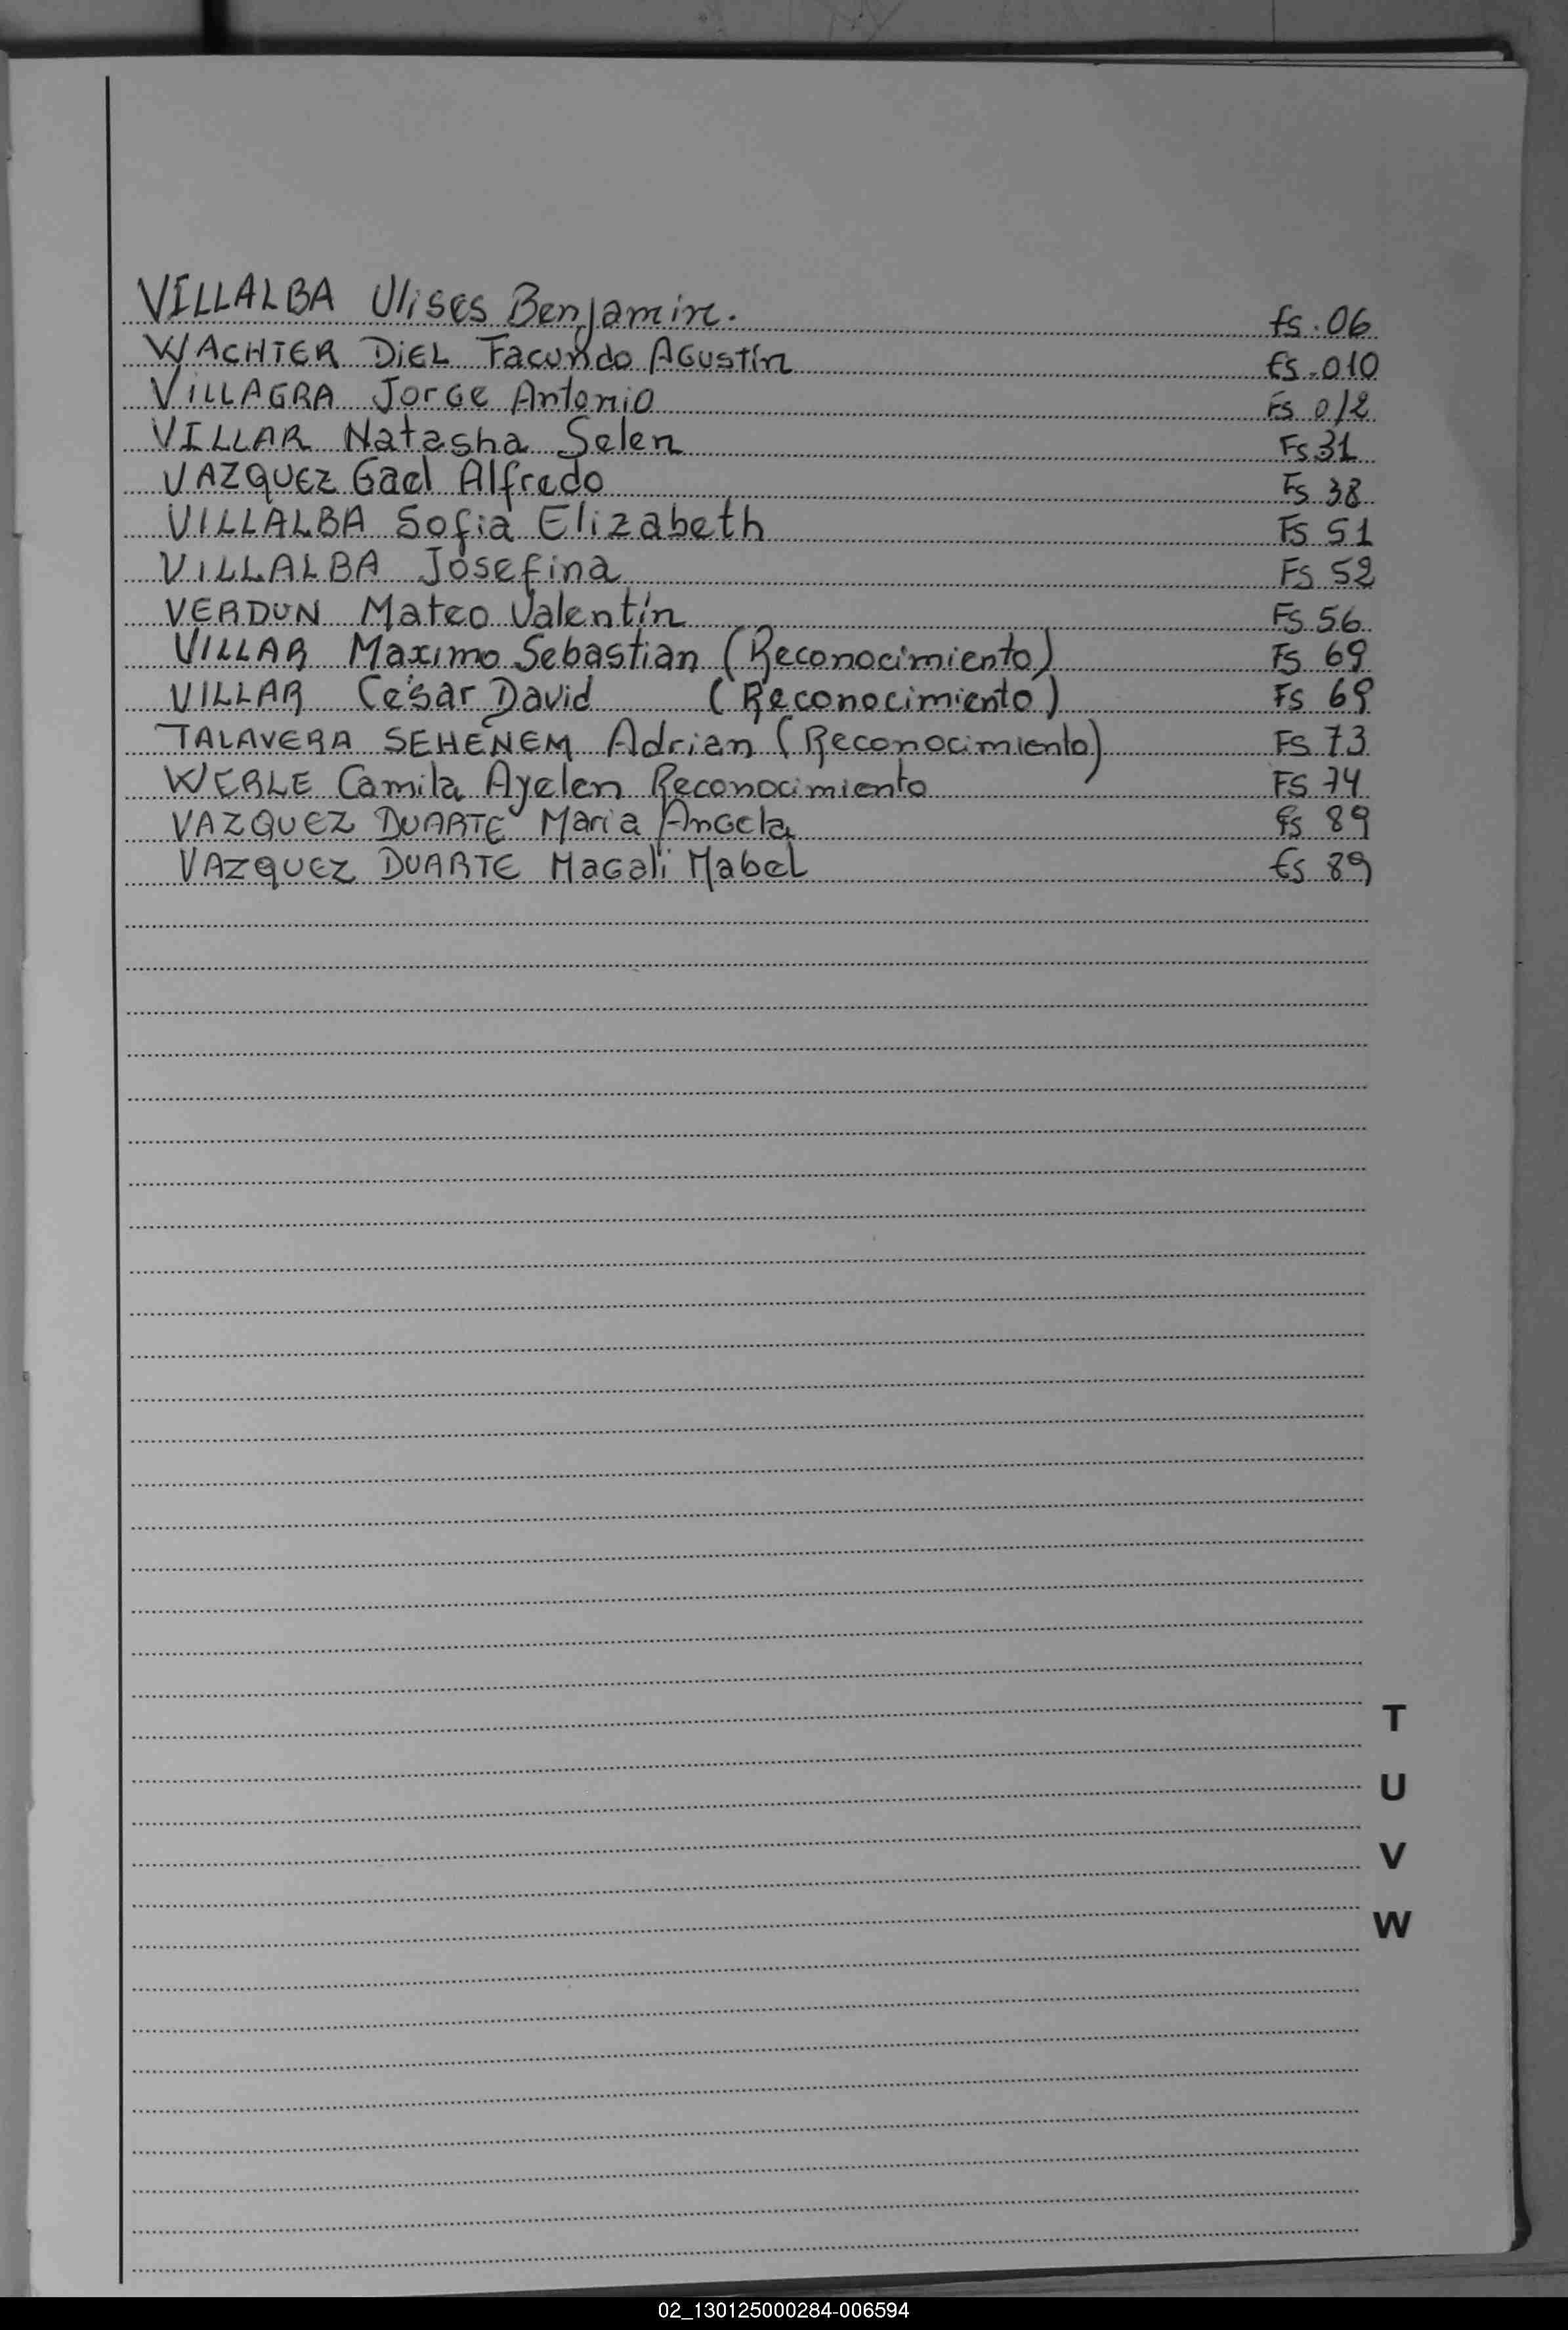 VILLALBA Ulises Benjamin. fs. 06
WACHTER DIEL Facundo Agustín fs. 010
VILLAGRA Jorge Antonio Fs 012
VILLAR Natasha Selen Fs 31
VAZQUEZ Gael Alfredo Fs 38
VILLALBA Sofia Elizabeth Fs 51
VILLALBA Josefina Fs 52
VERDUN Mateo Valentín Fs 56
VILLAR Maximo Sebastian (Reconocimiento) Fs 69
VILLAR César David (Reconocimiento) Fs 69
TALAVERA SEHENEM Adrian (Reconocimiento) Fs 73
WERLE Camila Ayelen Reconocimiento Fs 74
VAZQUEZ DUARTE Maria Angela fs 89
VAZQUEZ DUARTE Magali Mabel fs 89
T
U
V
W
02_130125000284-006594